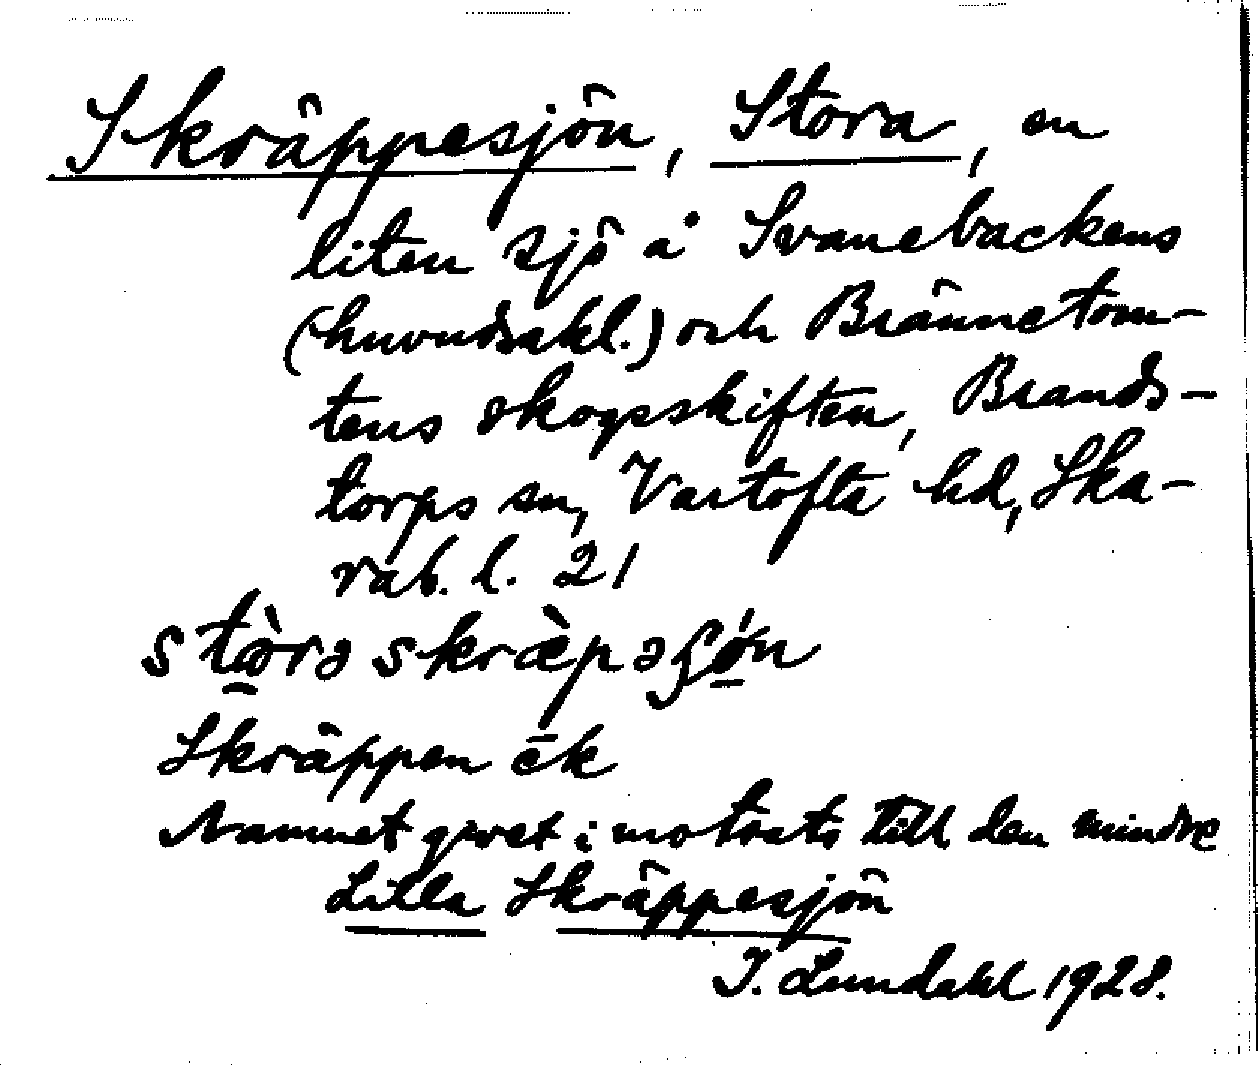 Skräppesjön, Stora, en
liten sjö å Svanebackens
(huvudsakl.) och Brännetom-
tens skogsskiften, Brands-
torps sn, Vartofta hd, Ska-
rab. l. 21
Skräppen ek
Namnet givet i motsats till den mindre
Lilla Skräppesjön
I. Lundahl 1928.